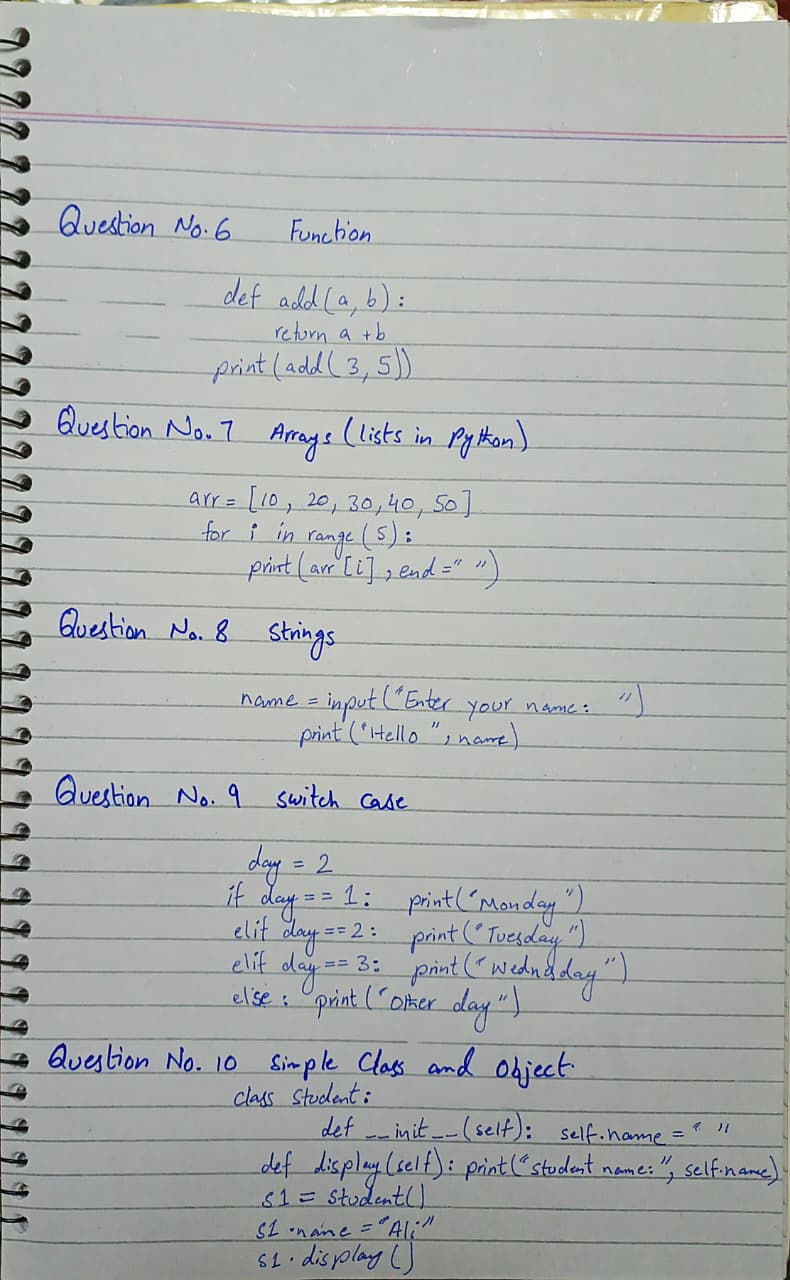 Question No. 6 Function
def add(a, b):
return a + b
print(add(3, 5))
Question No. 7 Arrays (lists in Python)
arr = [10, 20, 30, 40, 50]
for i in range(5):
print(arr[i], end=" ")
Question No. 8 Strings
name = input("Enter your name: ")
print("Hello", name)
Question No. 9 Switch Case
day = 2
if day == 1: print("Monday")
elif day == 2: print("Tuesday")
elif day == 3: print("Wednday")
else: print("Other day")
Question No. 10 Simple Class and Object
class Student:
def __init__(self): self.name = " "
def display(self): print("student name:", self.name)
s1 = student()
s1.name = "Ali"
s1.display()